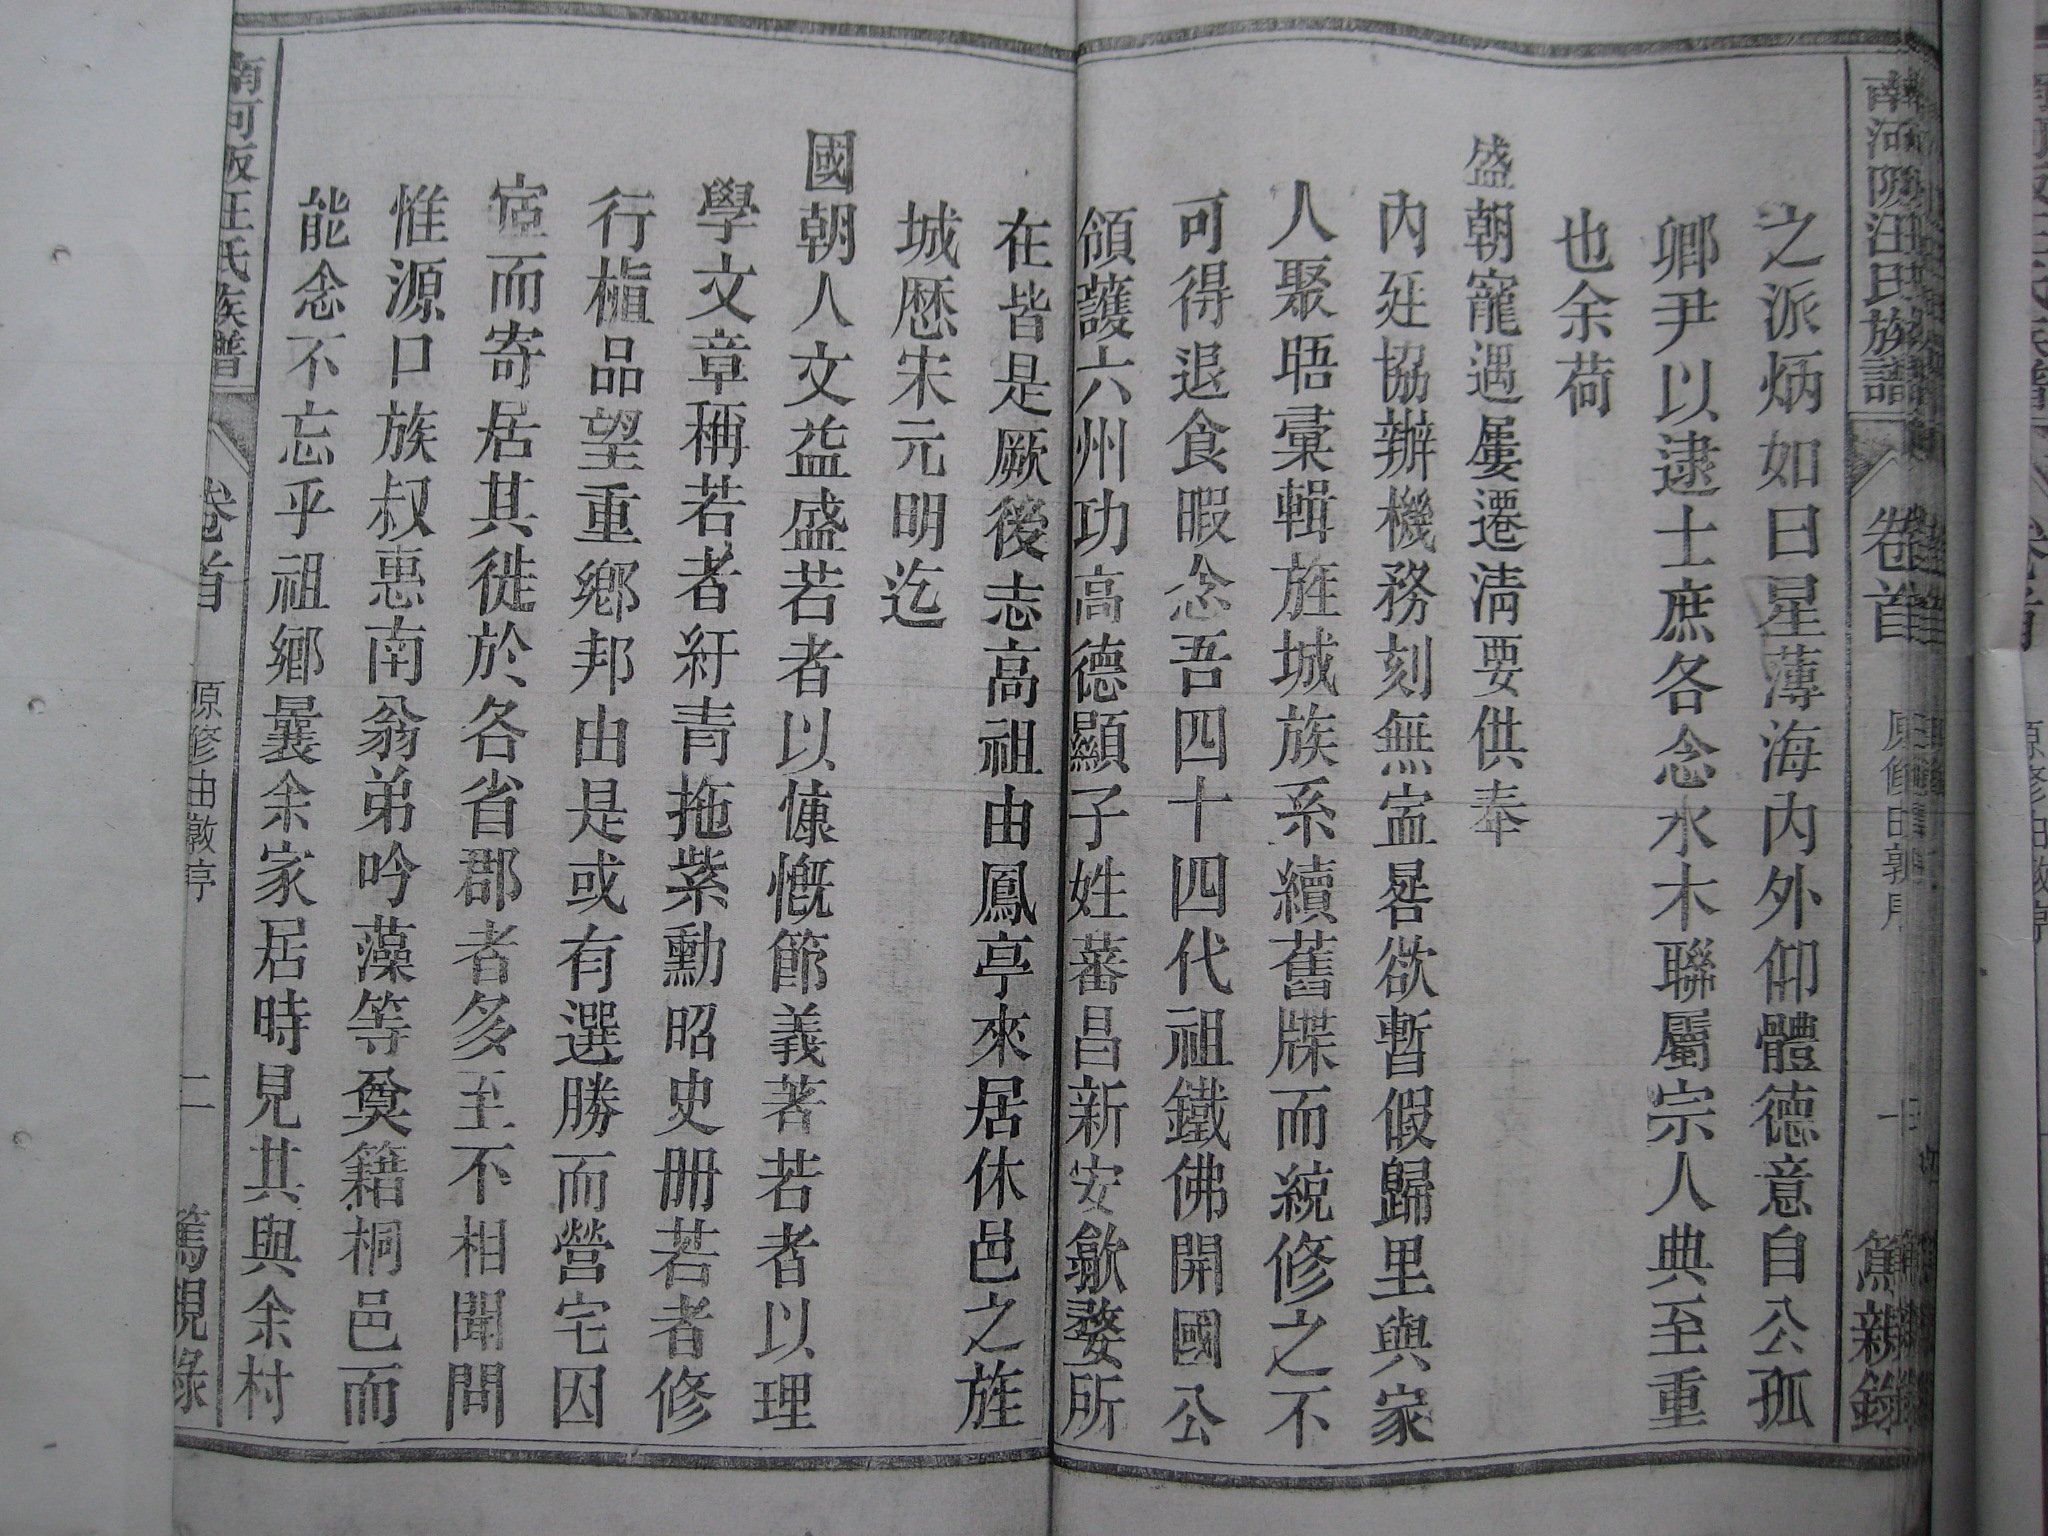 南河阪汪氏族譜 卷首 原修由敦序 一 篤親錄
之派炳如日星薄海內外仰體德意自公孤
卿尹以逮士庶各念水木聯屬宗人典至重
也余荷
盛朝寵遇屢遷淸要供奉
內廷協辦機務刻無寍晷欲暫假歸里與家
人聚晤彚輯旌城族系續舊牒而統修之不
可得退食暇念吾四十四代祖鐵佛開國公
領護六州功高德顯子姓蕃昌新安歙婺所
在皆是厥後志高祖由鳳亭來居休邑之旌
城歷宋元明迄
國朝人文益盛若者以慷慨節義著若者以理
學文章稱若者紆青拖紫勳昭史册若者修
行植品望重鄉邦由是或有選勝而營宅因
宦而寄居其徙於各省郡者多至不相聞問
惟源口族叔惠南翁弟吟藻等奠籍桐邑而
能念不忘乎祖鄉曩余家居時見其與余村
南河阪汪氏族譜 卷首 原修由敦序 二 篤親錄